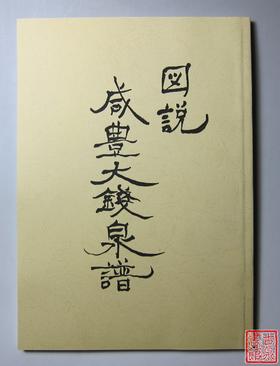 図説
咸豊大錢泉譜